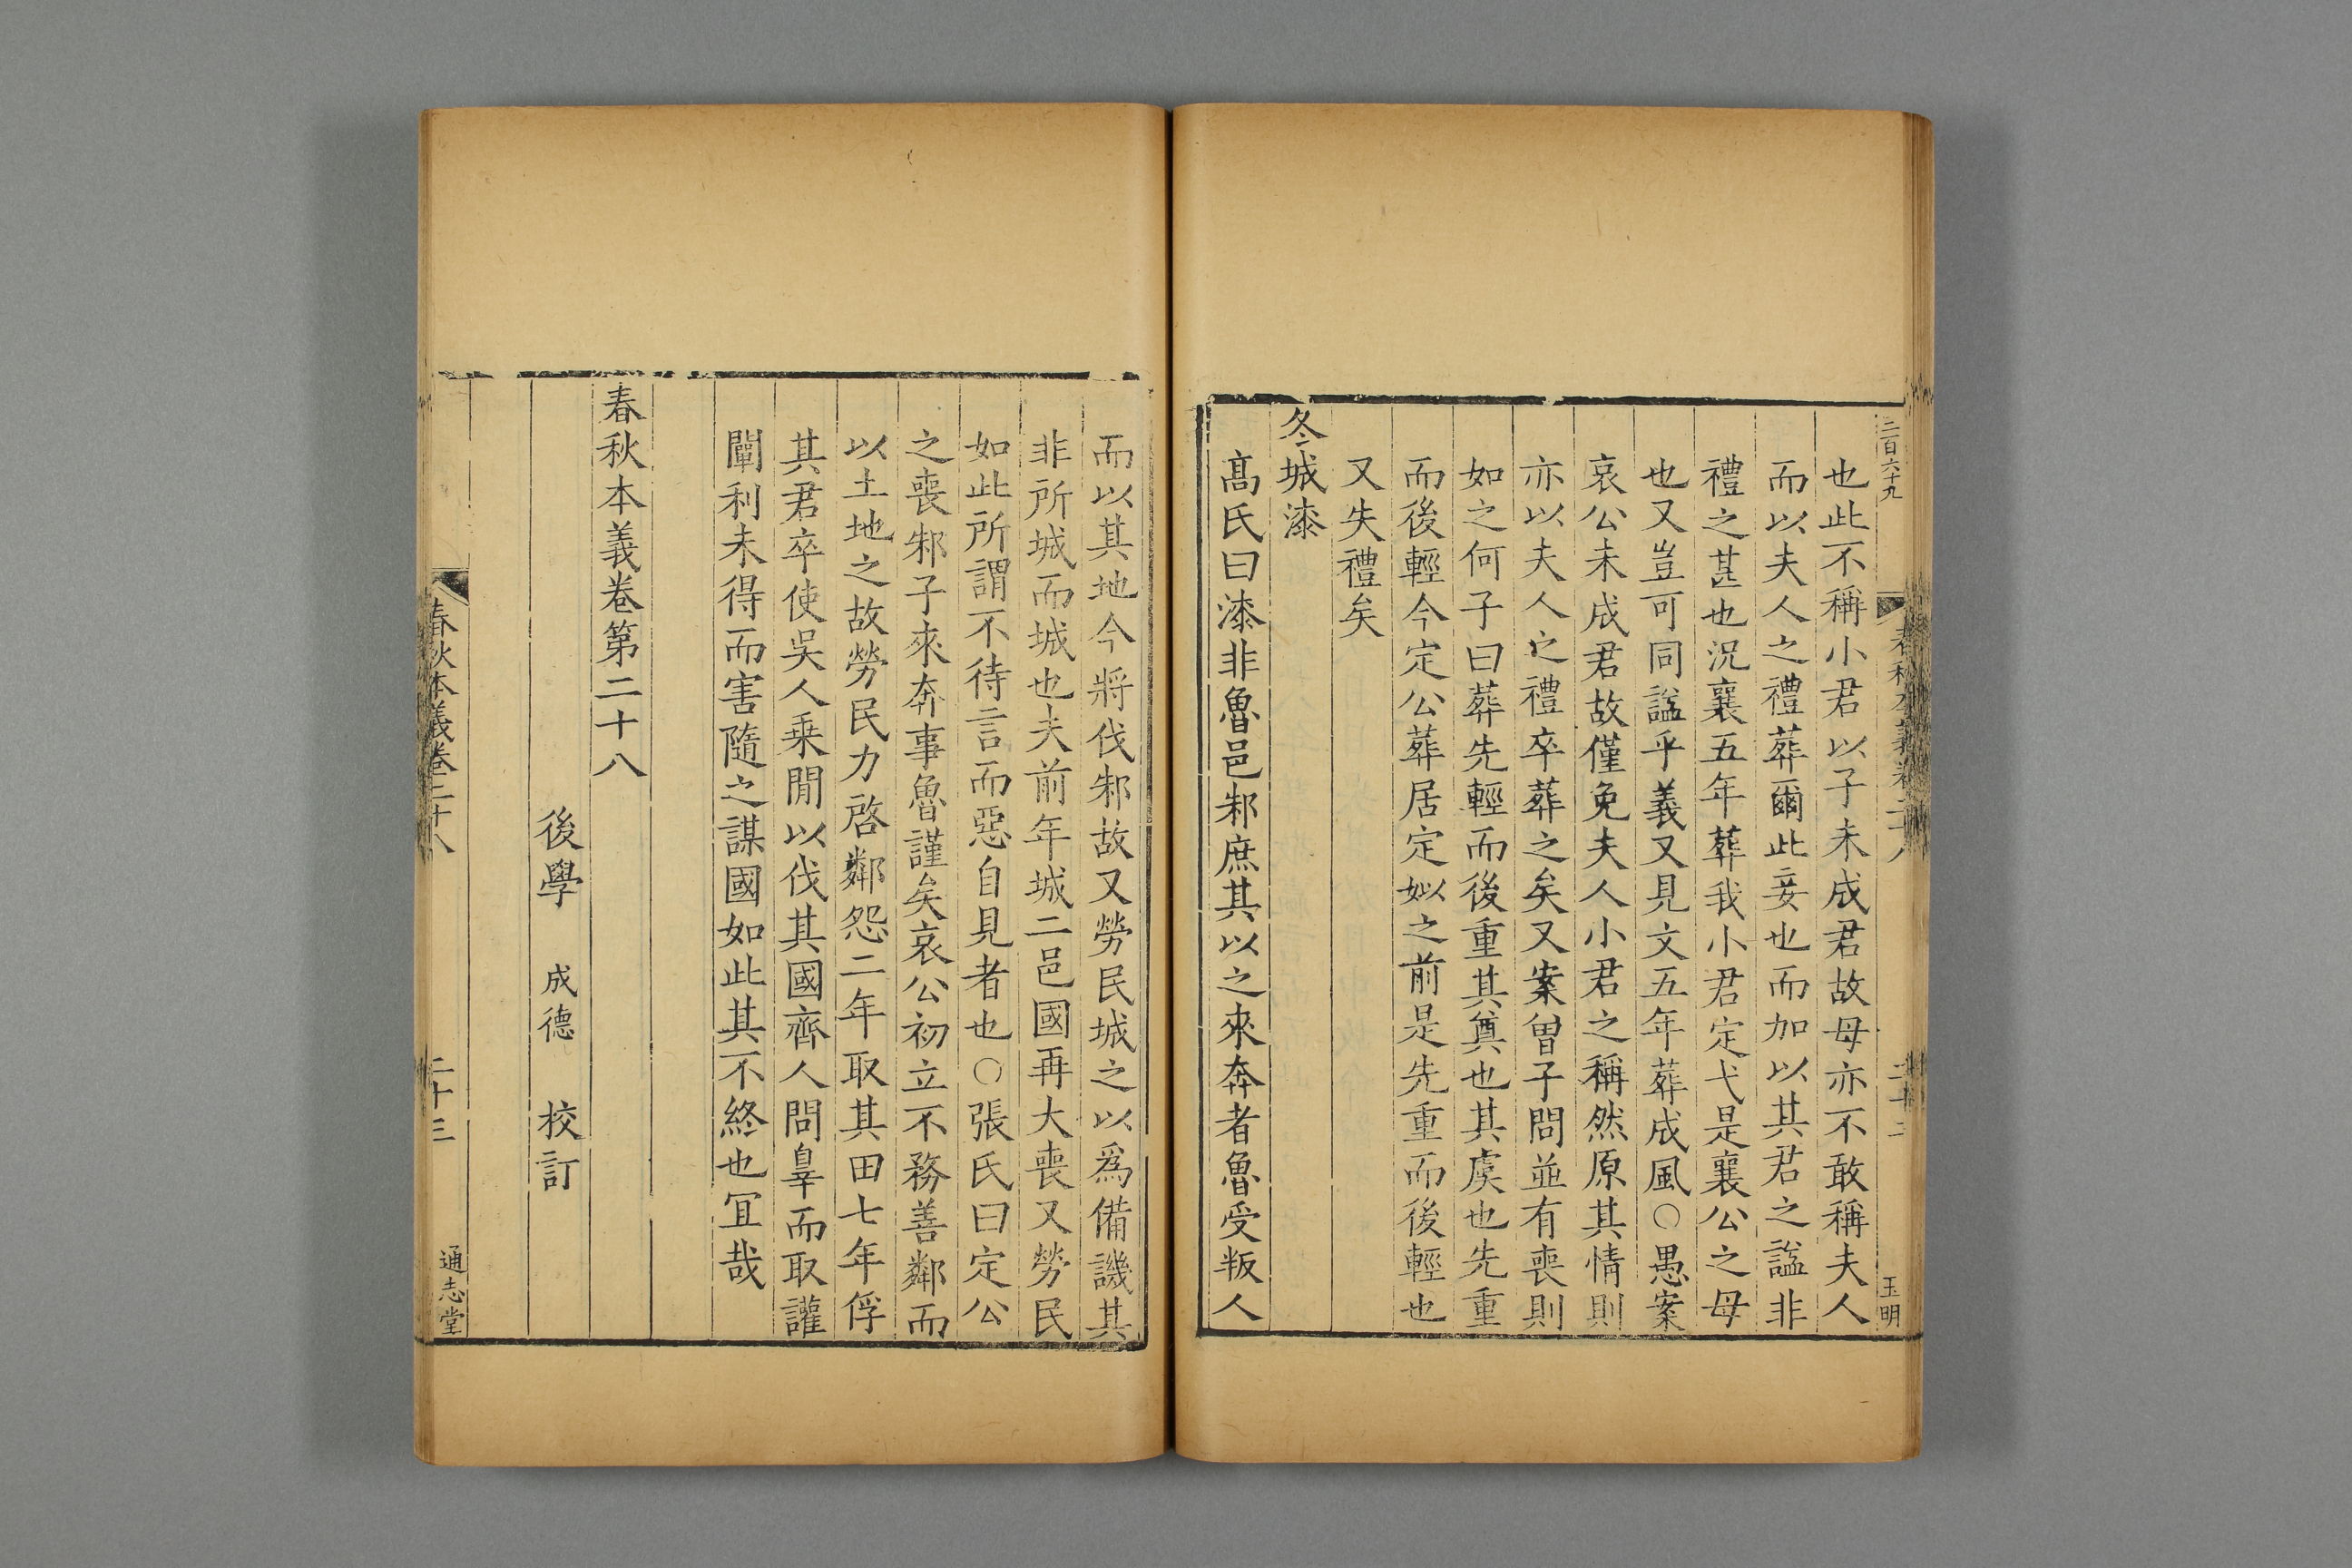 二百六十九
春秋本義卷二十八
二十三
玉明
也此不稱小君以子未成君故母亦不敢稱夫人
而以夫人之禮葬爾此妾也而加以其君之諡非
禮之甚也況襄五年葬我小君定弋是襄公之母
也又豈可同諡乎義又見文五年葬成風○愚案
哀公未成君故僅免夫人小君之稱然原其情則
亦以夫人之禮卒葬之矣又案曾子問並有喪則
如之何子曰葬先輕而後重其奠也其虞也先重
而後輕今定公葬居定姒之前是先重而後輕也
又失禮矣
冬城漆
髙氏曰漆非魯邑邾庶其以之來奔者魯受叛人
而以其地今將伐邾故又勞民城之以爲備譏其
非所城而城也夫前年城二邑國再大喪又勞民
如此所謂不待言而惡自見者也○張氏曰定公
之喪邾子來奔事魯謹矣哀公初立不務善鄰而
以土地之故勞民力啓鄰怨二年取其田七年俘
其君卒使吳人乗閒以伐其國齊人問辠而取讙
闡利未得而害隨之謀國如此其不終也冝哉
春秋本義卷第二十八
後學 成德 校訂
春秋本義卷二十八
二十三
通志堂